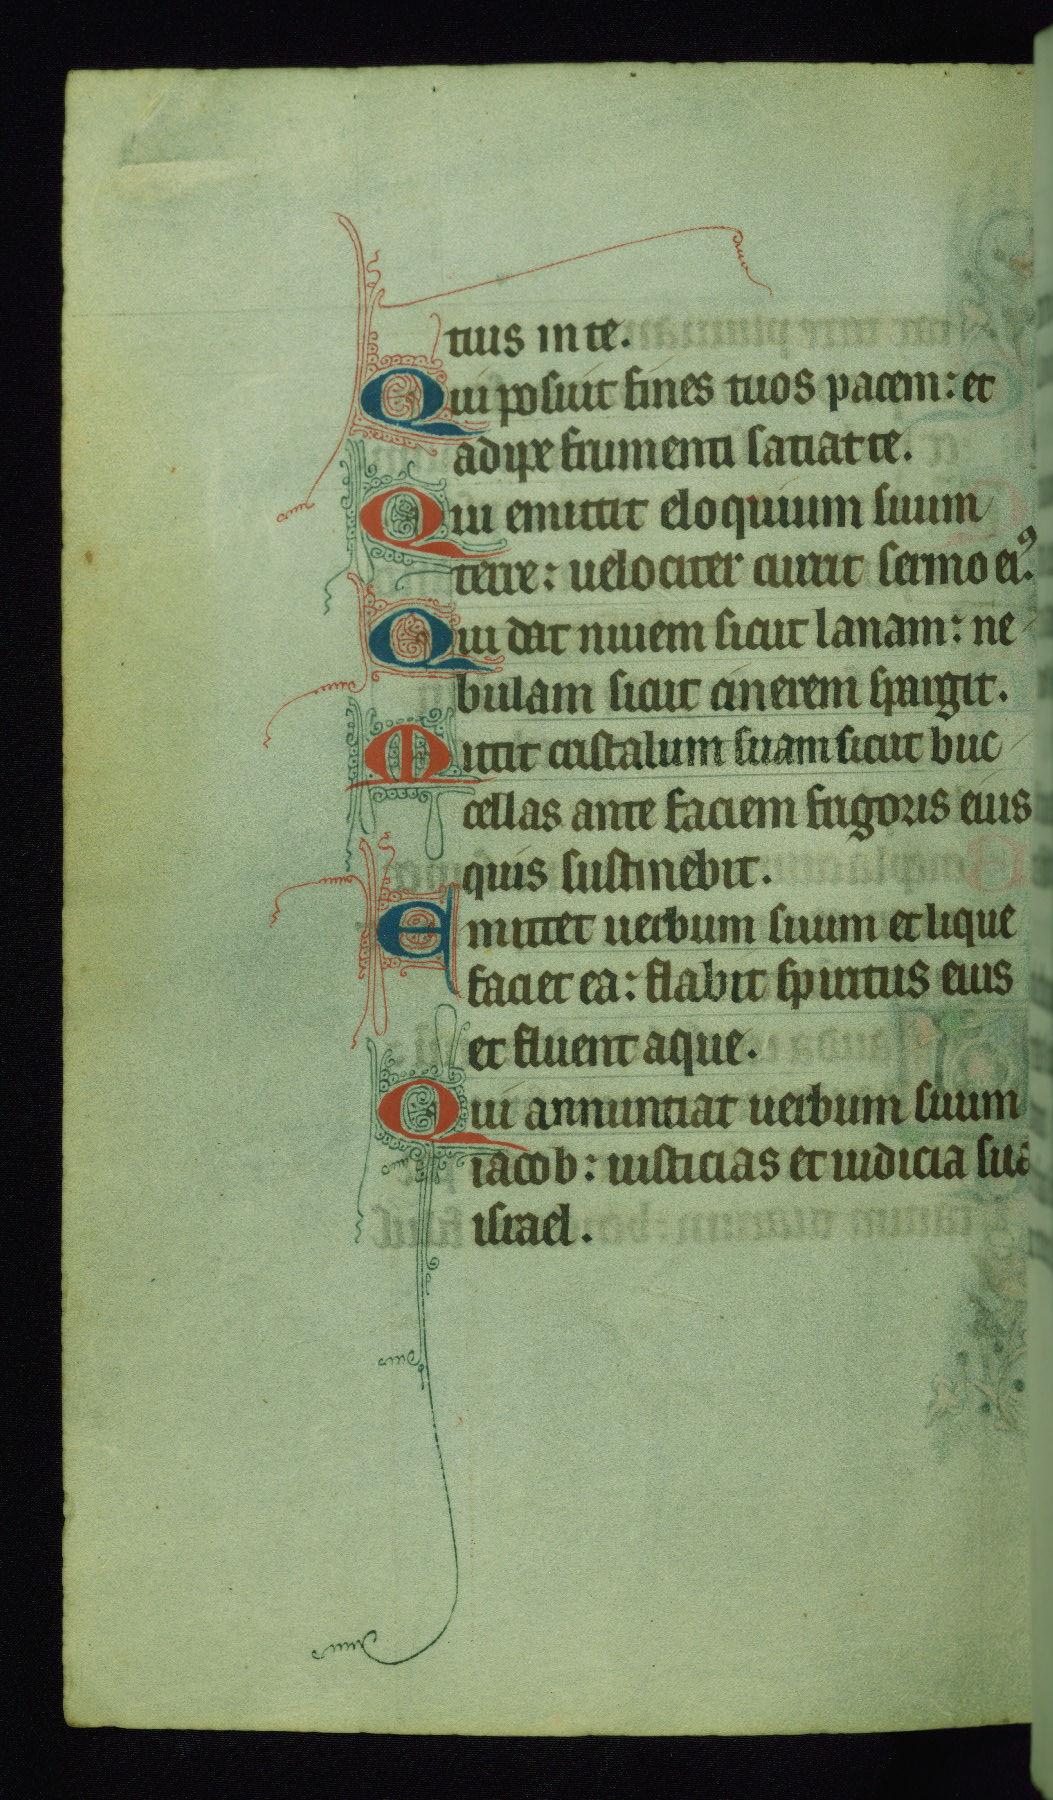 tuus in te.
Qui posuit fines tuos pacem: et
adipe frumenti satiat te.
Qui emittit eloquium suum
terre: uelociter currit sermo eiꝰ.
Qui dat niuem sicut lanam: ne
bulam sicut cinerem spargit.
Mittit cristalum suam sicut buc
cellas ante faciem frigoris eius
quis sustinebit.
Emittet uerbum suum et lique
faciet ea: flabit spiritus eius
et fluent aque.
Qui annuntiat uerbum suum
iacob: iusticias et iudicia sua
israel.